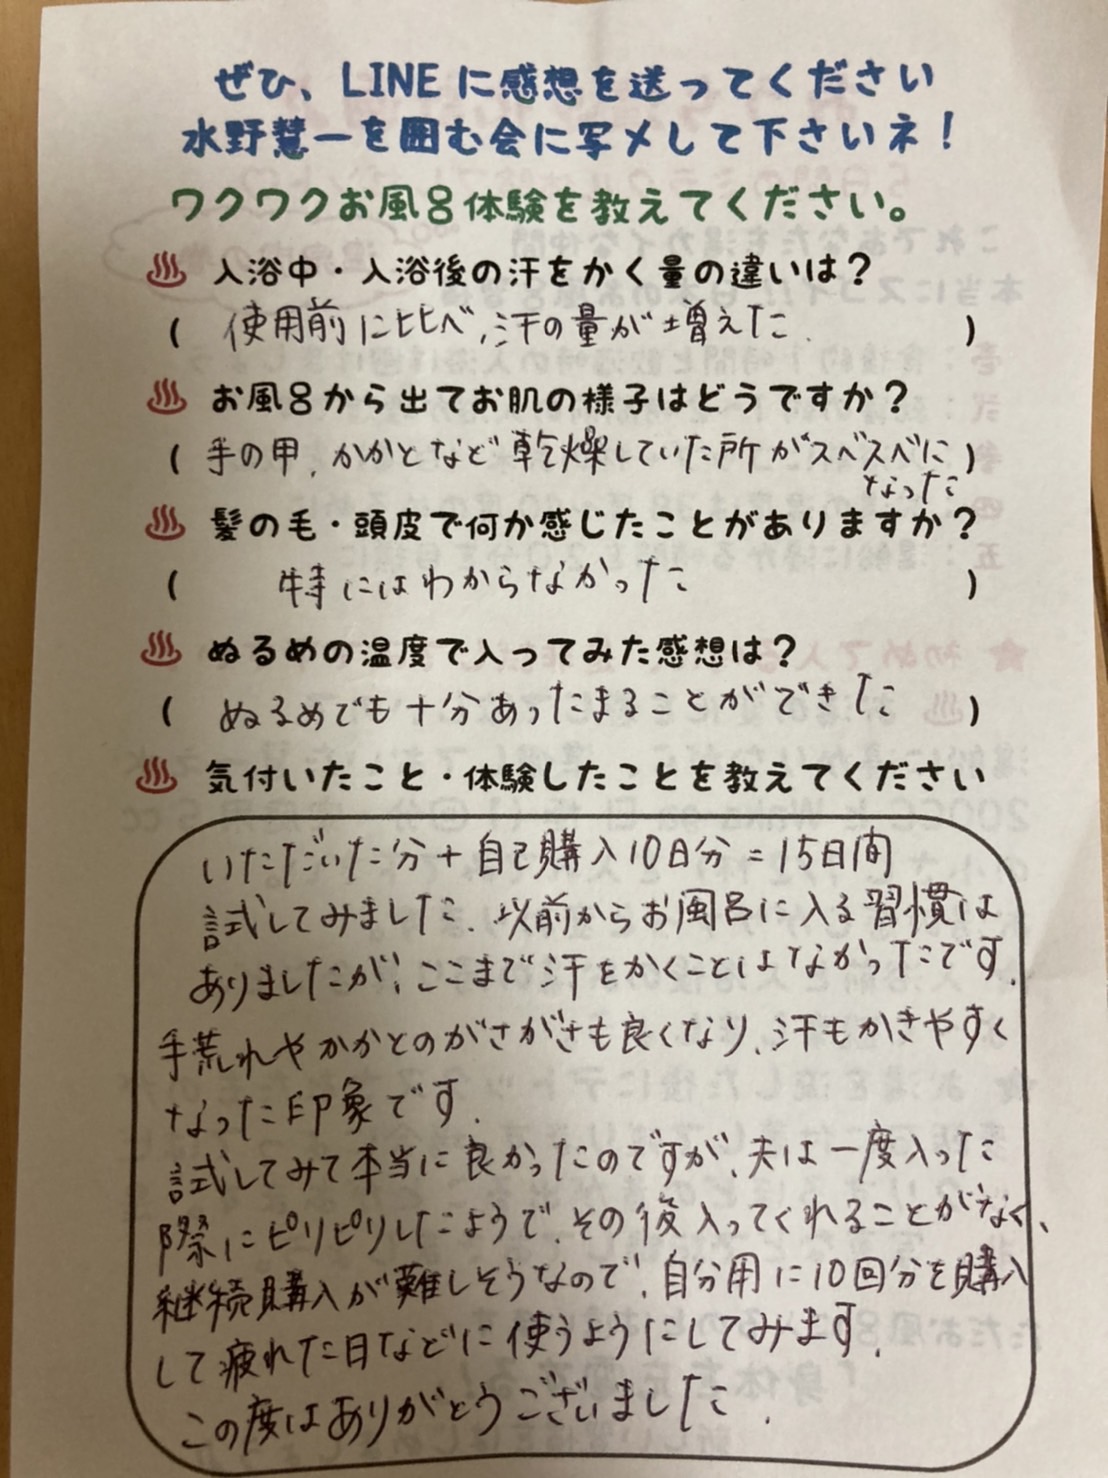 ぜひ、LINEに感想を送ってください
水野慧一を囲む会に写メして下さいネ!
ワクワクお風呂体験を教えてください。
入浴中・入浴後の汗をかく量の違いは?
( 使用前に比べ、汗の量が増えた. )
お風呂から出てお肌の様子はどうですか?
( 手の甲、かかとなど乾燥していた所がスベスベに )
なった
髪の毛・頭皮で何か感じたことがありますか?
( 特にはわからなかった )
ぬるめの温度で入ってみた感想は?
( ぬるめでも十分あったまることができた )
気付いたこと・体験したことを教えてください
いただいた分+自己購入10日分=15日間
試してみました. 以前からお風呂に入る習慣は
ありましたが、ここまで汗をかくことはなかったです.
手荒れやかかとのがさがさも良くなり、汗もかきやすく
なった印象です.
試してみて本当に良かったのですが、夫は一度入った
際にピリピリしたようで、その後入ってくれることがなく、
継続購入が難しそうなので、自分用に10回分を購入
して疲れた日などに使うようにしてみます.
この度はありがとうございました.